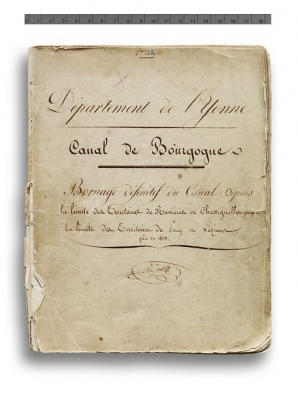 Département de l'Yonne
Canal de Bourgogne
Bornage définitif du Canal depuis
la limite des territoires de Ravières et Chassignelles jusqu'à
la limite des Territoires de Lezinnes